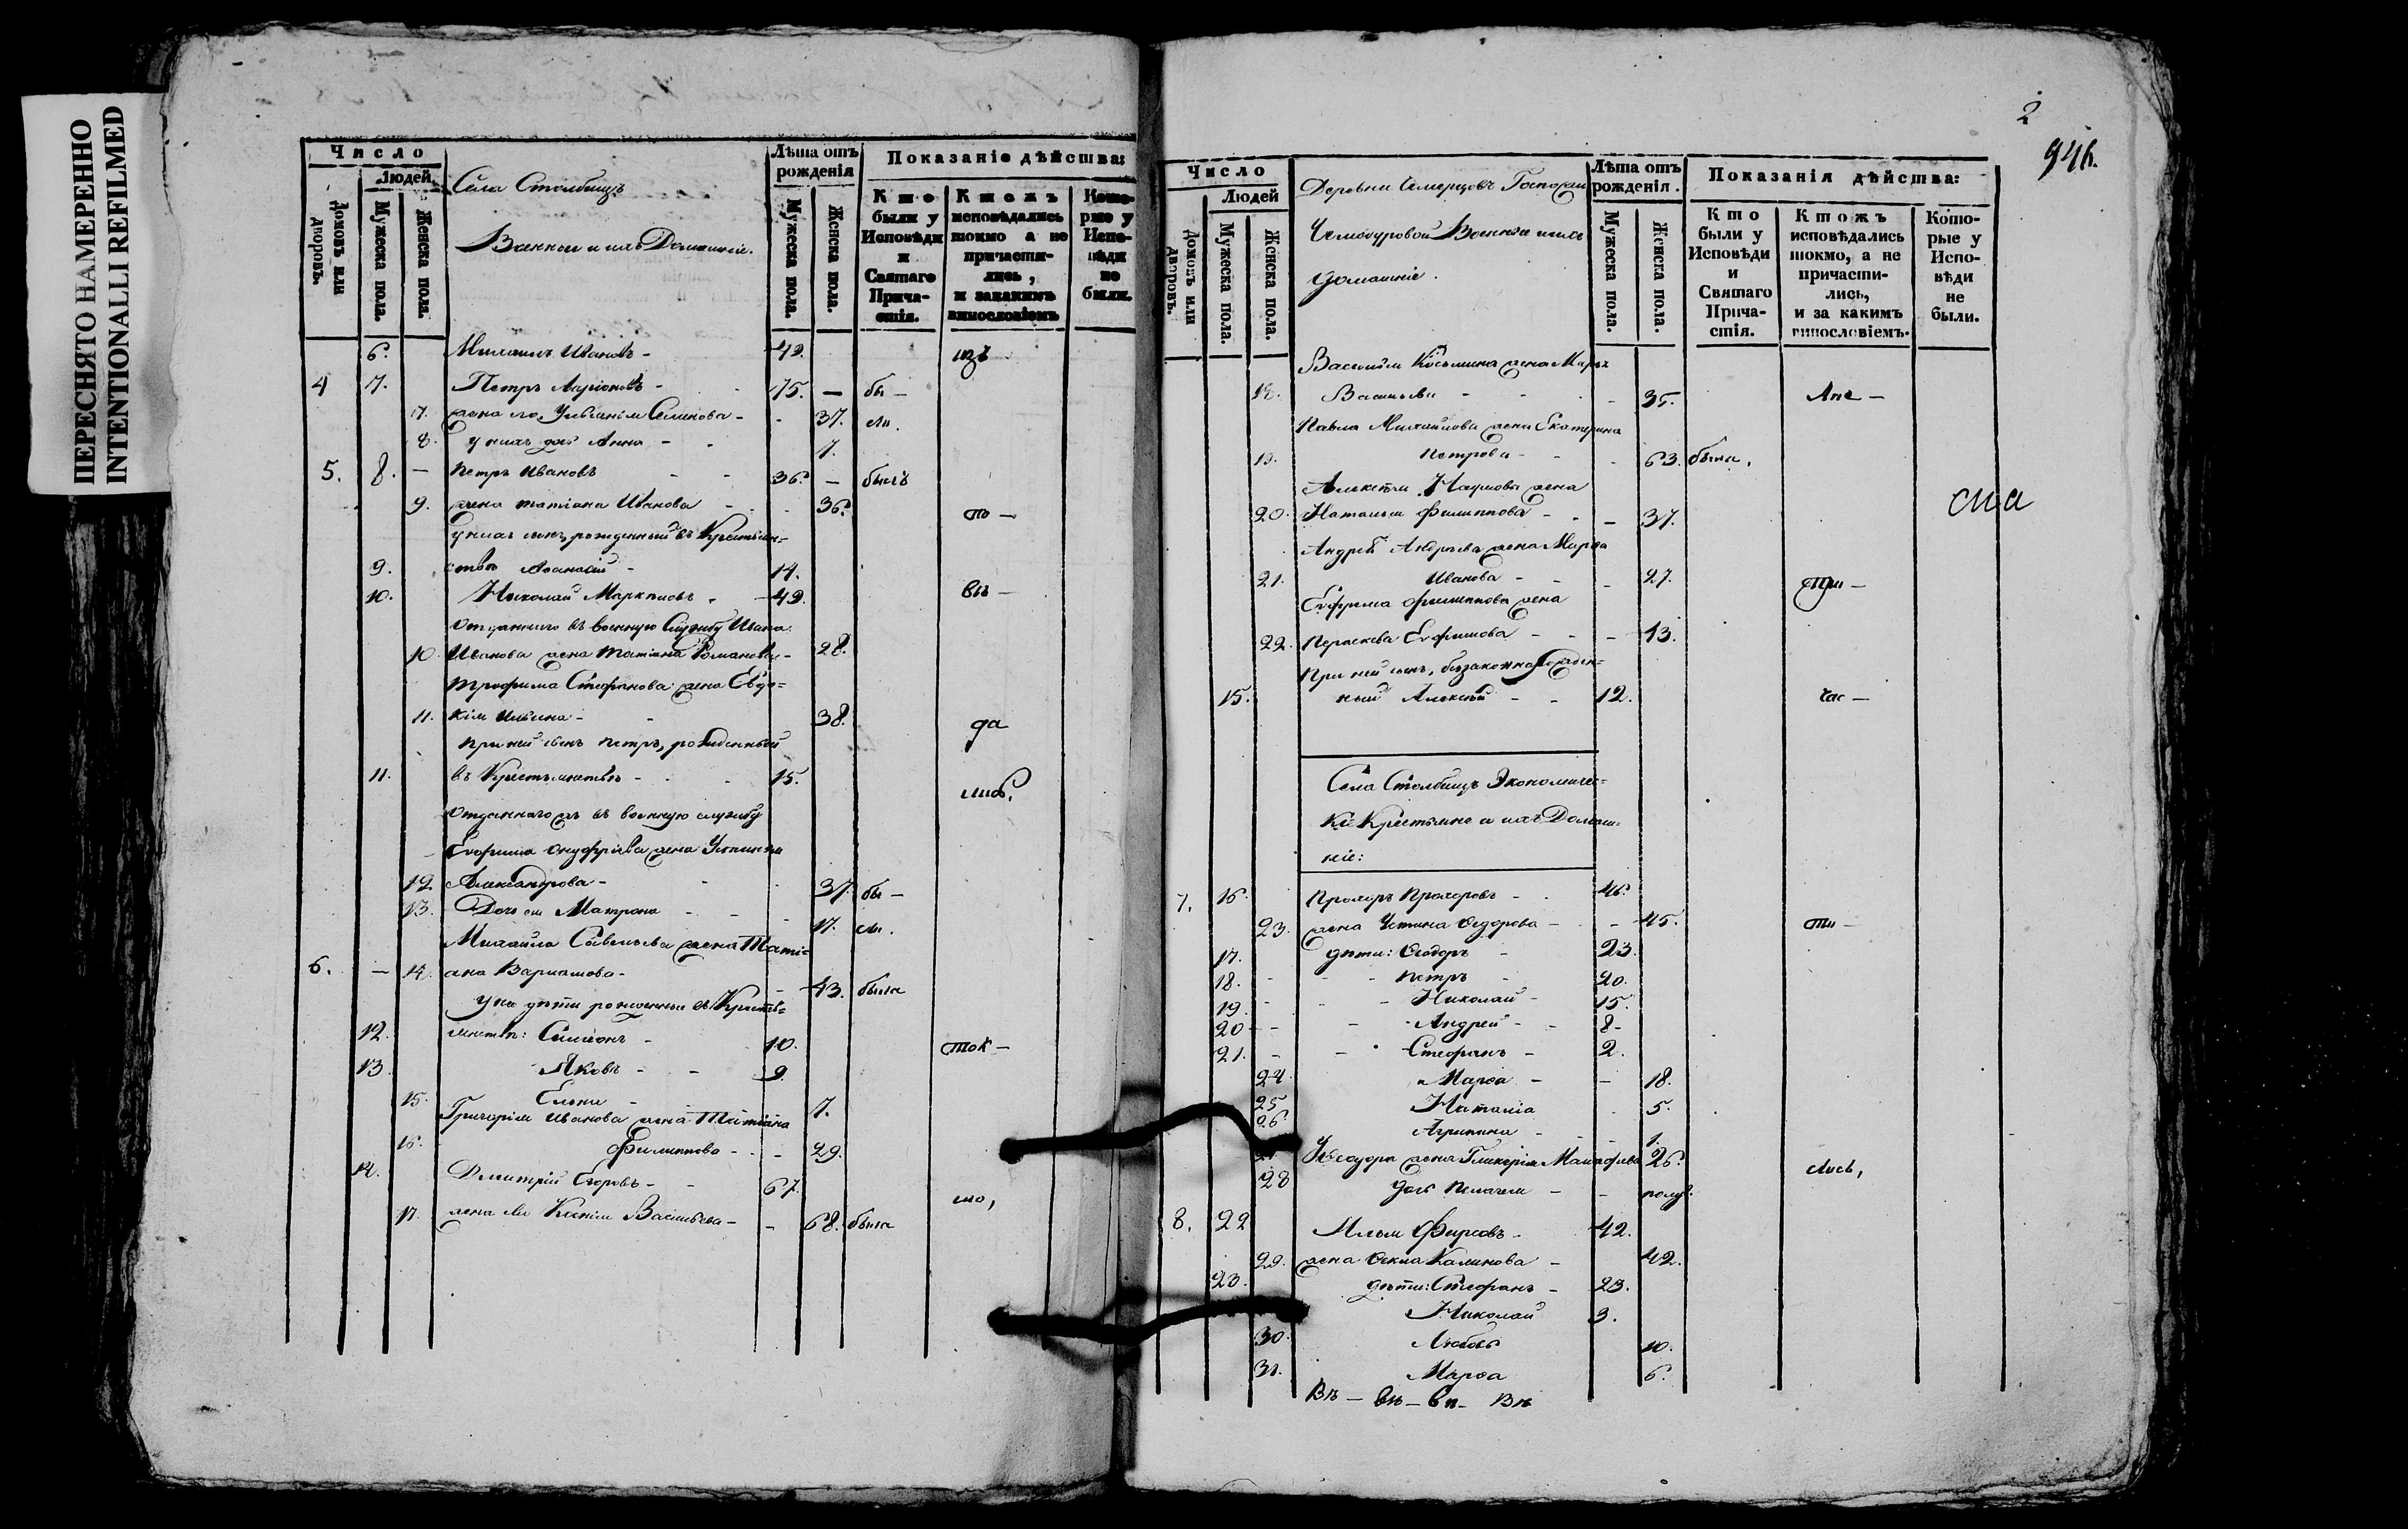 ПЕРЕСНЯТО НАМЕРЕННО
INTENTIONALLI REFILMED
Число
Людей.
Домовъ или дворовъ.
Мужеска пола.
Женска пола.
Села Столбищъ
Военныи и ихъ Домашніе.
Лѣта отъ рожденія
Мужеска пола.
Женска пола.
Показаніе дѣйства:
Кто были у Исповѣди и Святаго Прича-стія.
Ктожъ исповѣдались токмо а не причасти-лись, и закакимъ винословіемъ
Кото-рые у Испо-вѣди не были.
6. Михаилъ Ивановъ - 49.
4 7. Петръ Ларіоновъ - 75. — бы —
7. жена его Ульянія Семенова - 37. ли.
8. у нихъ дочь Анна - 7.
5. 8. — Петръ Ивановъ - 36. — былъ
9. жена Татіана Иванова - 36. по —
у нихъ сынъ, рожденный въ Крестьян=
9. ствѣ Аѳанасій - 14.
10. Николай Маркиловъ - 49. вѣ —
Отданнаго въ военную Службу Ивана
10. Иванова жена Татіана Романова - 28.
Трофима Стефанова жена Евдо=
11. кія Ильина - 38. да
при ней сынъ Петръ, рожденный
11. въ Крестьянствѣ - 15. лись,
Отданнаго въ военную службу
Евфима Онуфріева жена Устинья
12 Александрова - 37. бы —
13. Дочь ея Матрона - 17. ли.
Михайла Савельева жена Тати=
6. — 14. ана Варламова - 43. была
у нее дѣти рожденные въ Кресть=
12. янствѣ: Симеонъ - 10. ток —
13. Яковъ - 9.
15. Елена - 7.
Григорія Иванова жена Татіана
16. Филиппова - 29.
14. Дмитрій Егоровъ - 67. мо,
17. жена его Ксенія Васильева - 68. была
2
946.
Число
Людей
Домовъ или дворовъ.
Мужеска пола.
Женска пола.
Деревни Семерцовъ Госпожи
Чемодуровой Военныя и ихъ
домашніе.
Лѣта отъ рожденія.
Мужеска пола.
Женска пола.
Показанія дѣйства:
Кто были у Исповѣди и Святаго Прича-стія.
Ктожъ исповѣдались токмо, а не причасти-лись, и за какимъ винословіемъ.
Кото-рые у Испо-вѣди не были.
Василія Косьмина жена Марья
18. Васильева - 35. Ане —
Павла Михайлова жена Екатерина
19. Петрова - 63. была,
Алексѣя Наумова жена
20. Наталья Филиппова - 37.
Андрея Андреева жена Марѳа
21. Иванова - 27. при —
Евфима Филиппова жена
22. Параскева Евфимова - 43.
При ней сынъ, беззаконнорожден=
15. ный Алексѣй - 12. час —
Села Столбищъ Экономичес=
кіе Крестьяне и ихъ Домаш=
ніе:
7. 16. Прохоръ Прохоровъ - 46.
23. жена Устина Ѳедорова - 45. ти —
17. дѣти: Ѳеодоръ - 23.
18. Петръ - 20.
19. Николай - 15.
20 Андрей - 8.
21. Стефанъ - 2.
24. Марѳа - 18.
25 Наталіа 5.
26. Агрипина - 1.
27 У Ѳеодора жена Гликерія 26.
28 дочь Пелагея - полу.
лись,
8. 22 Илья Фирсовъ - 42.
29. жена Ѳекла Калинова - 42.
23. дѣти: Стефанъ - 23.
Николай 3.
30. Любовь 10.
31. Марѳа 6.
Вѣ — вѣ — вѣ — Вѣ